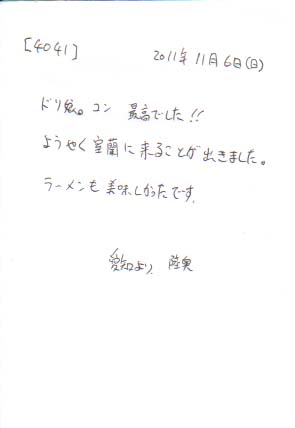 [4041]
2011年 11月6日(日)
ドリ娘。コン 最高でした!!
ようやく室蘭に来ることが出きました。
ラーメンも美味しかったです。
愛知より 陸奥